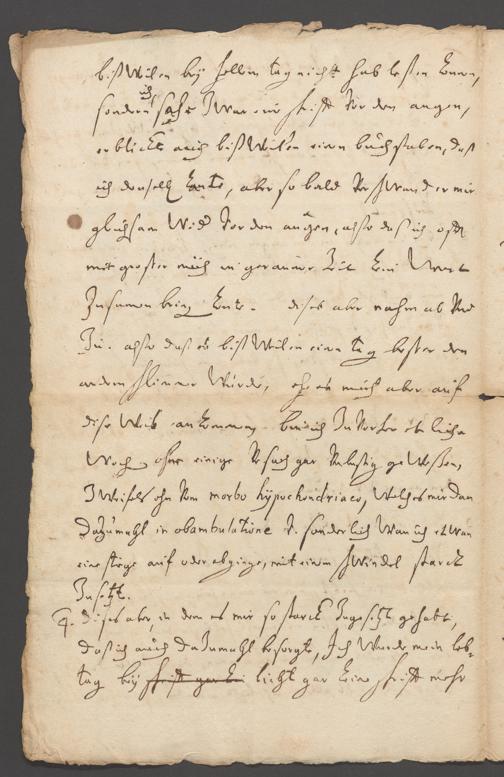 bißwilen bey hellem tag nicht hab lesen können,
sondern ich sahe zwar ein schrifft vor den augen,
erblickte auch bißwilen einen buchstaben, daß
ich denselb kante, aber so bald verschwand er mir
gleichsam wid vor den augen, also daß ich offt
mit grosser müh in geraumer Zeit kein Wort
Zusamen bring konte. dises aber nahm ab und
Zu. also daß es bißweilen einen tag besser den
andern schlimmer würde, ehe es mich aber auf
dise Weis ankommen, bin ich Zuvor etliche
Woch ohne einige Ursach gar unlustig gewesen,
Zweifels ohn vom morbo hypochondriaco, welches mir dan
dazumahl in obambulatione v. sonderlich wan ich etwan
eine stiege auf oder abgienge, mit einem schwindel starck
Zusetzt.
4. dises aber, in dem es mir so starck Zugesetzt gehabt,
daß ich auch dazumahl besorgte, Ich wurde mein leb-
tag bey schrifft gar kei licht gar keine schrifft mehr